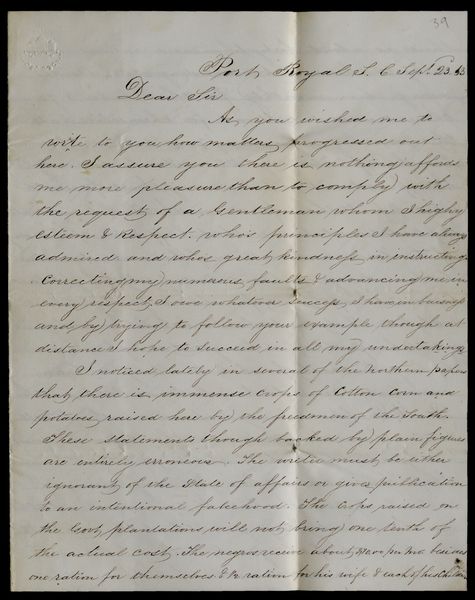 39
Port Royal S. C. Sept. 23. 63
Dear Sir
As you wished me to
write to you how matters progressed out
here. I assure you there is nothing affords
me more pleasure than to comply with
the request of a Gentleman whom I highly
esteem & Respect. who's principles I have always
admired and who's great kindness in instructing
Correcting my numerous faults & advancing me in
every respect, I owe whatever success I have in business
and by trying to follow your example though at
distance I hope to succeed in all my undertakings
I noticed lately in several of the Northern papers
that there is immense crops of Cotton Corn and
potatoes raised here by the freedmen of the South.
These statements though backed by plain figures
are entirely erroneous. The writer must be either
ignorant of the State of affairs or gives publication
to an intentional falsehood. The Crops raised on
the Govt plantations will not bring one tenth of
the actual cost. The negros receive about per mo. besides
one ration for themselves & ½ ration for his wife & each of his Children